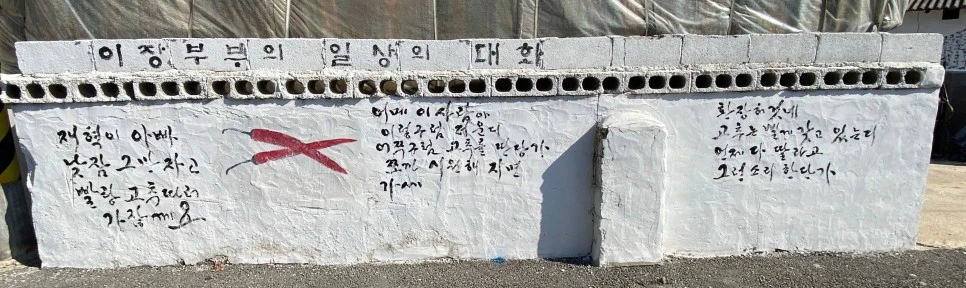 이장부부의 일상의 대화
재혁이 아빠
낮잠 그만 자고
빨랑 고추따러
어메 이사람아
이렇구럼 더운디
고추를 딴당가
쪼까 시원해 지면
가세
환장허것네
고추는 뻘게 갖고 있는디
언제 다 딸라고
그런소리 한단가